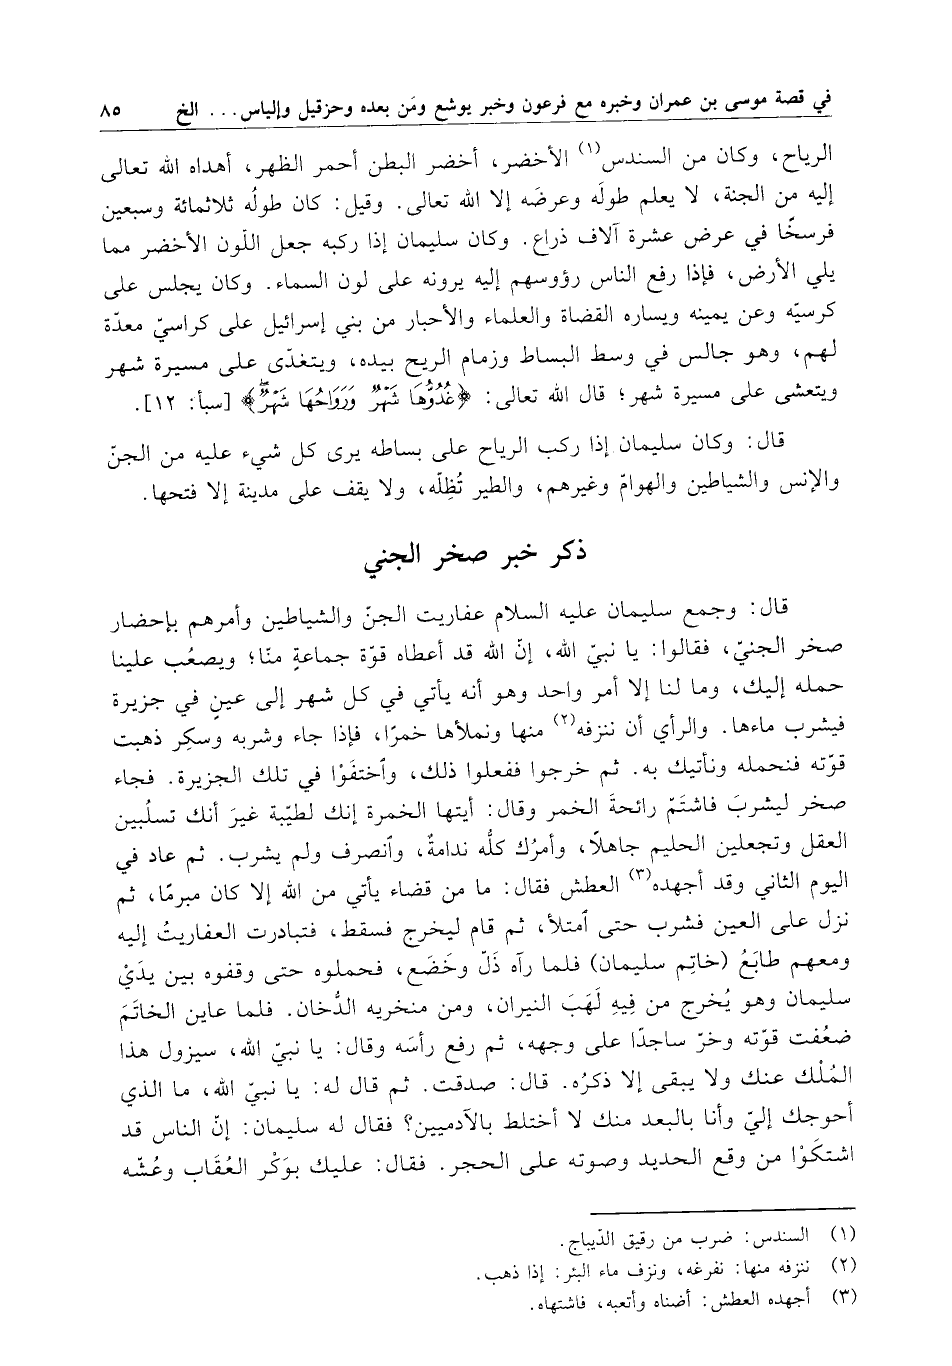 في قصة موسى بن عمران وخبره مع فرعون وخبر يوشع ومَن بعده وحزقيل وإلياس... الخ ٨٥
الرياح، وكان من السندس(١) الأخضر، أخضر البطن أحمر الظهر، أهداه الله تعالى
إليه من الجنة، لا يعلم طولَه وعرضَه إلا الله تعالى. وقيل: كان طولُه ثلاثمائة وسبعين
فرسخًا في عرض عشرة آلاف ذراع. وكان سليمان إذا ركبه جعل اللّون الأخضر مما
يلي الأرض، فإذا رفع الناس رؤوسهم إليه يرونه على لون السماء. وكان يجلس على
كرسيّه وعن يمينه ويساره القضاة والعلماء والأحبار من بني إسرائيل على كراسيّ معدّة
لهم، وهو جالس في وسط البساط وزمام الريح بيده، ويتغدّى على مسيرة شهر
ويتعشى على مسيرة شهر؛ قال الله تعالى: ﴿غُدُوُّهَا شَهْرٌ وَرَوَاحُهَا شَهْرٌ﴾ [سبأ: ١٢].
قال: وكان سليمان إذا ركب الرياح على بساطه يرى كل شيء عليه من الجنّ
والإنس والشياطين والهوامّ وغيرهم، والطير تُظِلّه، ولا يقف على مدينة إلا فتحها.
ذكر خبر صخر الجني
قال: وجمع سليمان عليه السلام عفاريت الجنّ والشياطين وأمرهم بإحضار
صخر الجنيّ، فقالوا: يا نبيّ الله، إنّ الله قد أعطاه قوّة جماعةٍ منّا؛ ويصعُب علينا
حمله إليك، وما لنا إلا أمر واحد وهو أنه يأتي في كل شهر إلى عينٍ في جزيرة
فيشرب ماءها. والرأي أن ننزفه(٢) منها ونملأها خمرًا، فإذا جاء وشربه وسكِر ذهبت
قوّته فنحمله ونأتيك به. ثم خرجوا ففعلوا ذلك، وٱختفَوْا في تلك الجزيرة. فجاء
صخر ليشربَ فاشتَمّ رائحةَ الخمر وقال: أيتها الخمرة إنك لطيّبة غيرَ أنك تسلُبين
العقل وتجعلين الحليم جاهلًا، وأمرُك كلُّه ندامةٌ، وٱنصرف ولم يشرب. ثم عاد في
اليوم الثاني وقد أجهده(٣) العطش فقال: ما من قضاء يأتي من الله إلا كان مبرمًا، ثم
نزل على العين فشرب حتى ٱمتلأ، ثم قام ليخرج فسقط، فتبادرت العفاريتُ إليه
ومعهم طابَعُ (خاتِم سليمان) فلما رآه ذَلّ وخَضَع، فحملوه حتى وقفوه بين يدَيْ
سليمان وهو يُخرج من فِيهِ لَهَبَ النيران، ومن منخريه الدُّخان. فلما عاين الخاتَمَ
ضعُفت قوّته وخرّ ساجدًا على وجهه، ثم رفع رأسَه وقال: يا نبيّ الله، سيزول هذا
المُلْك عنك ولا يبقى إلا ذكرُه. قال: صدقت. ثم قال له: يا نبيّ الله، ما الذي
أحوجك إليّ وأنا بالبعد منك لا أختلط بالآدميين؟ فقال له سليمان: إنّ الناس قد
اشتكَوْا من وقع الحديد وصوته على الحجر. فقال: عليك بوَكْر العُقَاب وعُشّه
(١) السندس: ضرب من رقيق الدّيباج.
(٢) ننزفه منها: نفرغه، ونزف ماء البئر: إذا ذهب.
(٣) أجهده العطش: أضناه وأتعبه، فاشتهاه.